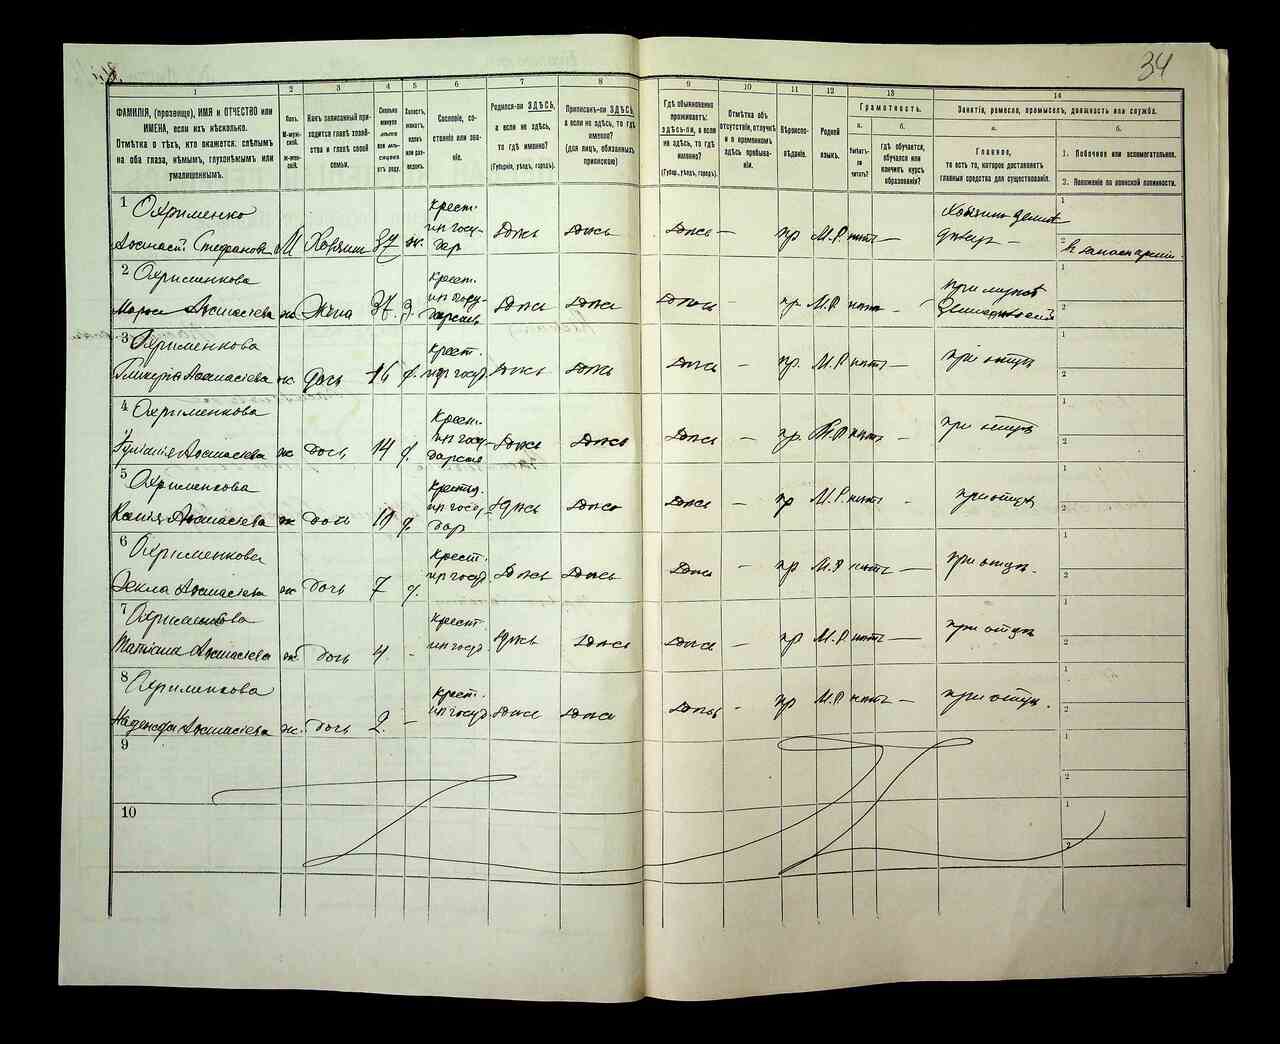 34
1
2
3
4
5
6
7
8
9
10
11
12
13
14
ФАМИЛІЯ, (прозвище), ИМЯ и ОТЧЕСТВО или
ИМЕНА, если ихъ нѣсколько.
Отмѣтка о тѣхъ, кто окажется: слѣпымъ
на оба глаза, нѣмымъ, глухонѣмымъ или
умалишеннымъ.
Полъ.
М-муж-
ской.
Ж-жен-
скій.
Какъ записанный при-
ходится главѣ хозяй-
ства и главѣ своей
семьи.
Сколько
минуло
лѣтъ
или мѣ-
сяцевъ
отъ роду.
Холостъ,
женатъ,
вдовъ
или раз-
веденъ.
Сословіе, со-
стояніе или зва-
ніе.
Родился-ли ЗДѢСЬ,
а если не здѣсь,
то гдѣ именно?
(Губернія, уѣздъ, городъ).
Приписанъ-ли ЗДѢСЬ,
а если не здѣсь, то гдѣ
именно?
(для лицъ, обязанныхъ
припискою)
Гдѣ обыкновенно
проживаетъ:
здѣсь-ли, а если
не здѣсь, то гдѣ
именно?
(Губер., уѣздъ, городъ).
Отмѣтка объ
отсутствіи, отлучкѣ
и о временномъ
здѣсь пребыва-
ніи.
Вѣроиспо-
вѣданіе.
Родной
языкъ.
Грамотность.
а.
Умѣетъ-
ли
читать?
б.
Гдѣ обучается,
обучался или
кончилъ курсъ
образованія?
Занятіе, ремесло, промыселъ, должность или служба.
а.
Главное,
то есть то, которое доставляетъ
главныя средства для существованія.
б.
1. Побочное или вспомогательное.
2. Положеніе по воинской повинности.
1 Охрименко
Афанасій Стефановъ М Хозяинъ 37 ж.
Крест.
из госу-
дар
здѣсь здѣсь здѣсь — пр М.Р. нѣтъ —
1
2
2 Охрименкова
Афанасіева ж Жена 37. з.
Крест.
из госу-
дарств
здѣсь здѣсь здѣсь — пр. М.Р нѣтъ —
при мужѣ
1
2
3 Охрименкова
Гликерія Афанасіева ж дочь 16 д.
Крест.
из госуд.
здѣсь здѣсь здѣсь — пр. М.Р нѣтъ —
при отцѣ
1
2
4 Охрименкова
Афанасіева ж дочь 14 д.
Крест.
из госу-
дарств
здѣсь здѣсь здѣсь — пр. М.Р нѣтъ —
при отцѣ
1
2
5 Охрименкова
Афанасіева ж дочь 10 д.
Крестя.
из госу-
дар
здѣсь здѣсь здѣсь — пр М.Р. нѣтъ
при отцѣ
1
2
6 Охрименкова
Фекла Афанасіева ж дочь 7 д.
Крест.
из госуд
здѣсь здѣсь здѣсь — пр М.Р нѣтъ —
при отцѣ.
1
2
7 Охрименкова
Татіана Афанасіева ж дочь 4 -
Крест.
из госуд
здѣсь здѣсь здѣсь — пр М.Р нѣтъ —
при отцѣ
1
2
8 Охрименкова
Надежда Афанасіева ж. дочь 2. —
Крест.
из госуд
здѣсь здѣсь здѣсь — пр М.Р. нѣтъ —
при отцѣ.
1
2
9
1
2
10
1
2